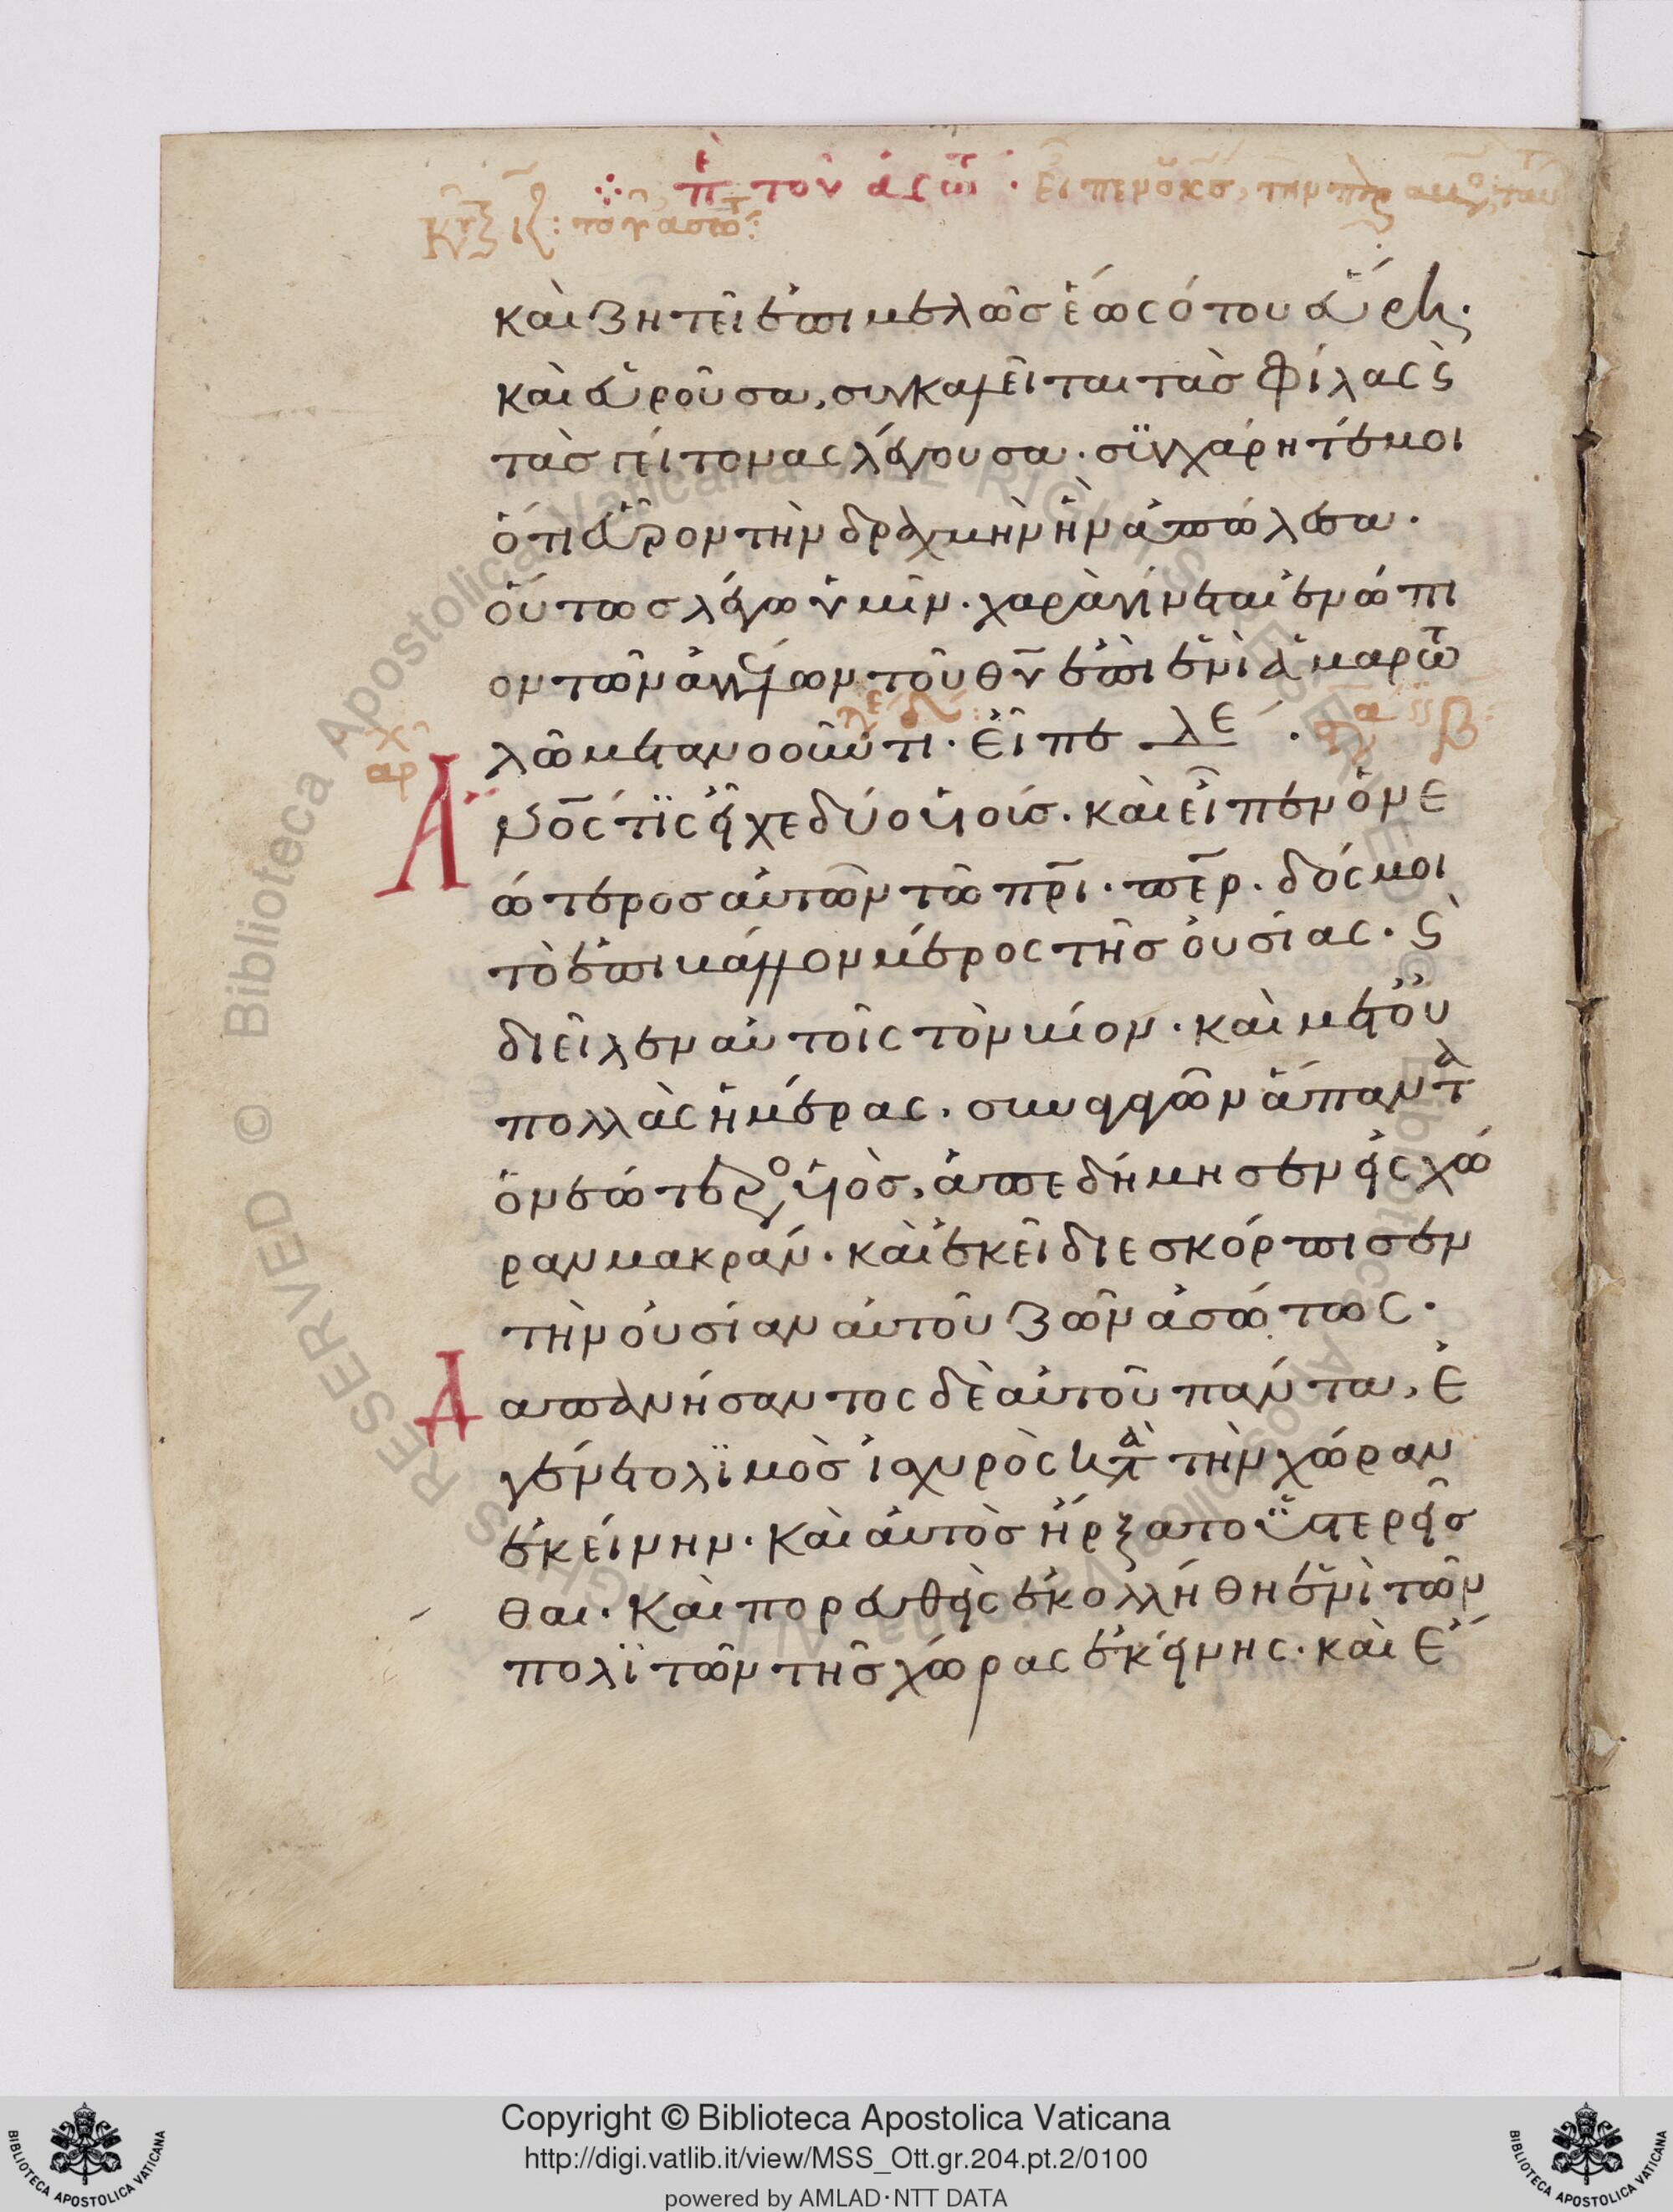 π τον ἀσω · Εἶπεν ὁ κς, την
κυ ιζ : του ασωτ :
καὶ ζητεῖ ἐπιμελῶσ ἕως ὅτου εὕρη·
καὶ εὑροῦσα, συγκαλεῖται τὰσ φίλας ϛ
τὰσ γείτονας λέγουσα · σϋγχάρητέ μοι
ὅτι εὗρον τὴν δραχμὴν ἣν ἀπώλεσα ·
οὕτωσ λέγω ὑμῖν · χαρὰ γίνεται ἐνώπι
ον τῶν ἀγγέλων τοῦ θυ ἐπὶ ἑνὶ ἁμαρτω
λῶ μετανοοῦντι · Εἶπε λε ·
αρχ
Α νος τϊς εἶχε δύο υἱούσ · καὶ εἶπεν ὁ νε
ώτεροσ αὐτῶν τῶ πρι · περ · δός μοι
τὸ ἐπιβάλλον μέρος τῆσ οὐσίας · ϛ
διεῖλεν αὐτοῖς τὸν βίον · καὶ μετ οὐ
πολλὰς ἡμέρας · συναγαγῶν ἅπαντα
ὁ νεώτερος υἱὸσ, ἀπεδήμησεν εἰς χώ
ραν μακράν · καὶ ἐκεῖ διεσκόρπισεν
τὴν οὐσίαν αὐτοῦ ζῶν ἀσώτως ·
Δ απανήσαντος δὲ αὐτοῦ πάντα, ἐ
γένετο λϊμὸσ ἰσχυρὸς κατὰ τὴν χώραν
ἐκείνην · Καὶ αὐτὸσ ἤρξατο ὑστερεῖσ
θαι · Καὶ πορευθεὶς ἐκολλήθη ἑνὶ τῶν
πολϊτῶν τῆσ χώρας ἐκείνης · καὶ ἔ
Copyright © Biblioteca Apostolica Vaticana
http://digi.vatlib.it/view/MSS_Ott.gr.204.pt.2/0100
powered by AMLAD·NTT DATA
BIBLIOTECA APOSTOLICA VATICANA
BIBLIOTECA APOSTOLICA VATICANA